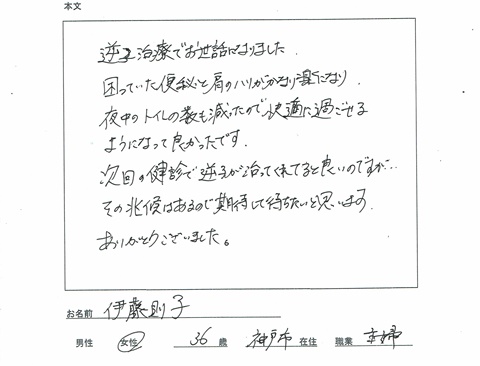 本文
逆子治療でお世話になりました.
困っていた便秘と肩のハリがかなり楽になり.
夜中のトイレの数も減ったので快適に過ごせる
ようになって良かったです.
次回の健診で逆子が治ってくれてると良いのですが…
その兆候はあるので期待して待ちたいと思います.
ありがとうございました。
お名前 伊藤則子
男性 女性 36 歳 神戸市 在住 職業 主婦